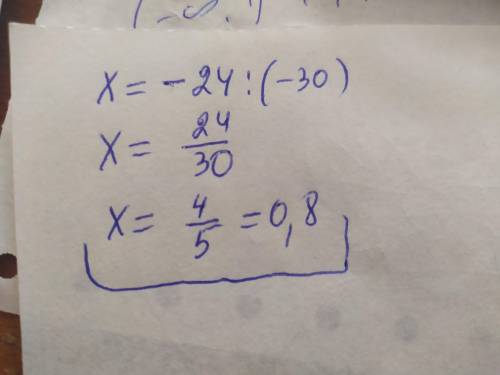 x = - 24 : (-30)
x = 24/30
x = 4/5 = 0,8